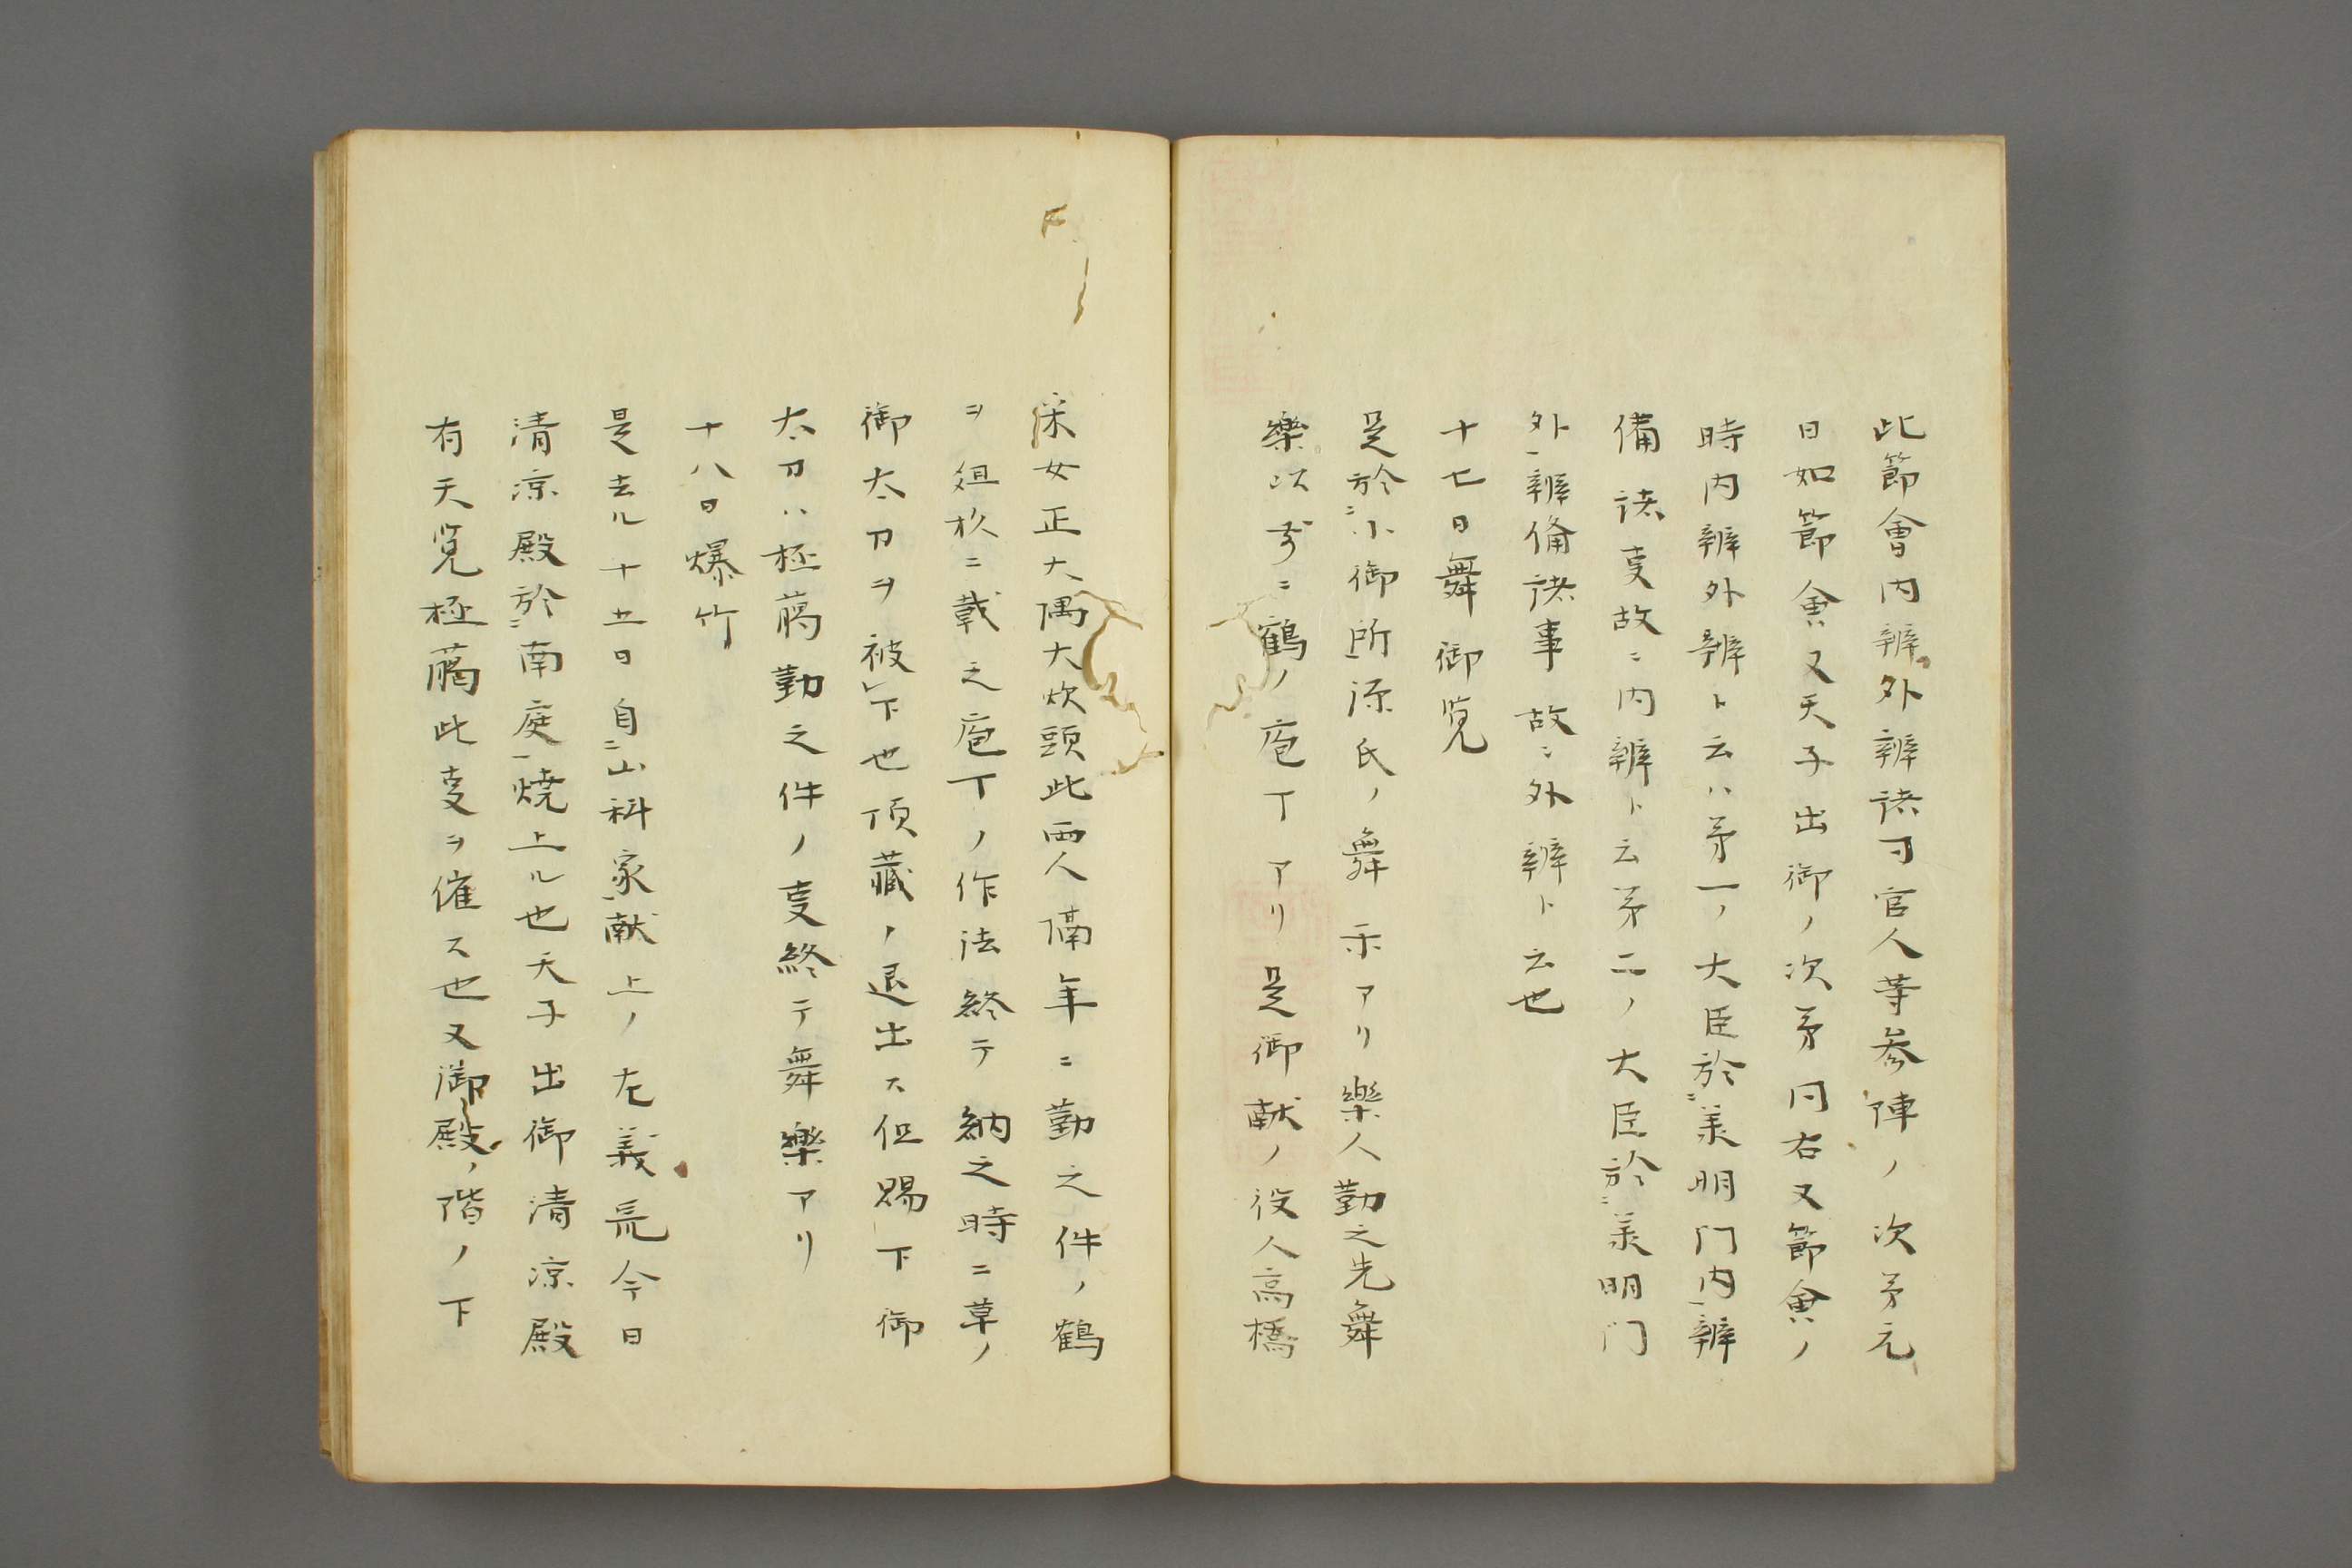 此節會内辨外辨諸司官人等参陣ノ次第元
日如節會又天子出御ノ次第同右又節會ノ
時内辨外辨ト云ハ第一ノ大臣於ニ義明門内一辨
備諸㕝故ニ内辨ト云第二ノ大臣於ニ義明門
外一辨備諸事故ニ外辨ト云也
十七日舞御覧
是於ニ小御所一源氏ノ舞示アリ樂人勤之先舞
樂以前ニ鶴ノ庖丁アリ是御献ノ役人高橋
采女正大隅大炊頭此両人隔年ニ勤之件ノ鶴
ヲ俎板ニ載之庖丁ノ作法終テ納之時ニ草ノ
御太刀ヲ被レ下也頂藏ノ退出ス但賜下御
太刀ハ極﨟勤之件ノ㕝終テ舞樂アリ
十八日爆竹
是去ル十五日自ニ山科家一献上ノ左義長今日
清凉殿於ニ南庭一焼上ル也天子出御清凉殿
有天覧極﨟此㕝ヲ催ス也又御殿ノ階ノ下